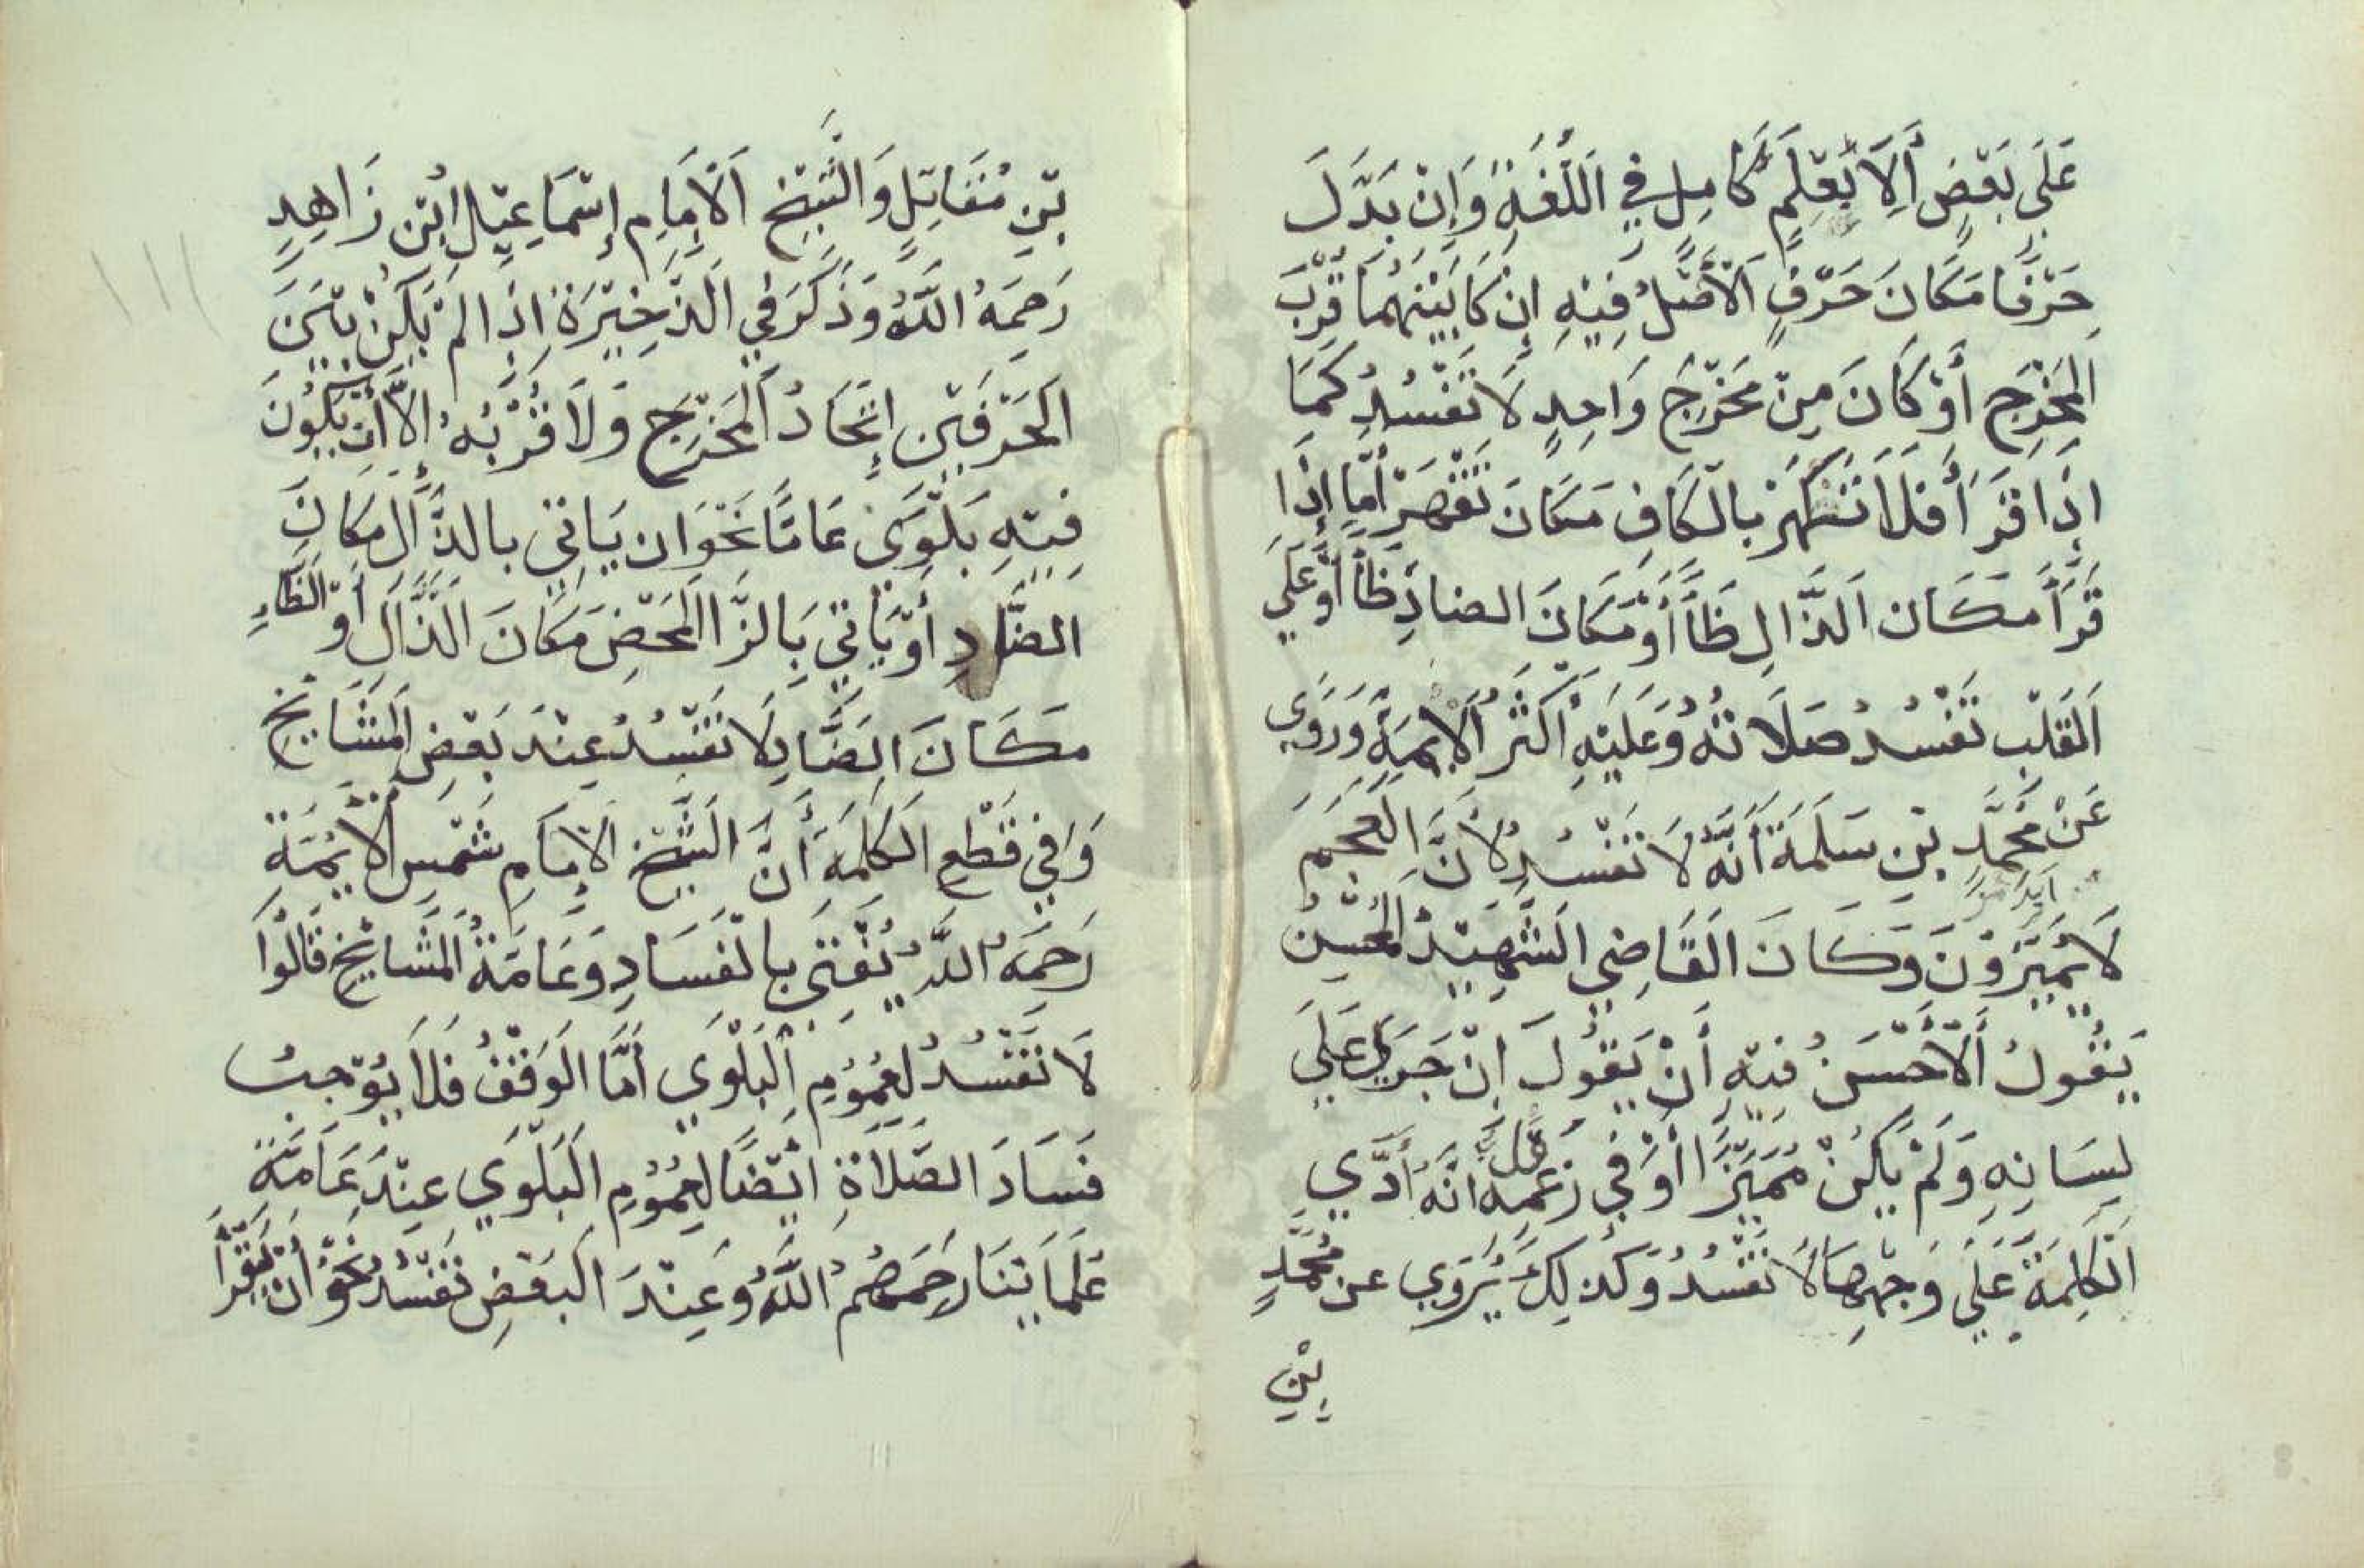 عَلَي بَعْضٍ اَلَا بِعِلْمٍ كَامِلٍ فِي اَللُّغَةِ وَاِنْ بَدَّلَ
حَرْفًا مَكَانَ حَرْفٍ اَلْاَصْلُ فِيْهِ اِنْ كَا بَيْنَهُمَا قُرْبَ
اَلْمَخْرَجِ أَوْ كَانَ مِنْ مَخْرَجٍ وَاحِدٍ لَا تَفْسُدُ كَمَا
اِذَا قَرَأَ فَلَا تَكْهَرْ بِالْكَافِ مَكَانَ تَقْهَرْ اَمَّا اِذَا
قَرَأَ مَكَان اَلذَّالِ ظَاً أَوْ مَكَانَ الضادِ ظَاً اَوْ عَلَي
اَلْقَلْبِ تَفْسُدُ صَلَاتُهُ وَعَلَيْهِ اَكْثَرُ اَلْاَيِمَّةِ وَرَوَي
عَنْ مُحَمَّدِ بْنِ سَلَمَةَ أَنَّهُ لَا تَفْسُدُ لِأَنَّ الْعَجَمَ
لَا يُمَيِّزُوْنَ وَكَانَ اَلْقَاضِي اَلشَّهِيْدُ اَلْمُحْسِنُ
يَقُولُ اَلْاَحْسَنُ فِيْهِ أَنْ يَقُوْلَ اِنْ جَرَي عَلَي
لِسَانِهِ وَلَمْ يَكُنْ مُمَيِّزًا اَوْ فِي زَعْمِهِ اَنَّهُ اَدَّي
اَلْكَلِمَةَ عَلَي وَجْهِهَا لَا تَفْسُدُ وَكَذلِكَ يُرْوَي عن مُحَمَّدٍ
بْنِ
بْنِ مُقَاتِلٍ وَالشَّيْخِ اَلْاِمَامِ اِسْمَاعِيْلِ ابْنِ زَاهِدٍ
رَحِمَهُ اللَّهُ وَذَكَرَ فِي اَلذَّخِيْرَةِ اِذَا لَمْ يَكُنْ بَيْنَ
اَلْحَرْفَيْنِ اِتِّحَادُ اَلْمَخْرَجِ وَلَا قُرْبُهُ اِلاَّ اَنْ يَكُوْنَ
فِيْهِ بَلْوَي عَامًّا نَحْوَ ان يَاتِي بالذَّالِ مَكَانَ
الضَّادِ أَوْ يَاْتِي بِالزَّا اَلْمَحْضِ مَكَانَ اَلذَّالِ اَوْ الظَّاءِ
مَكَانَ اَلضَّادِ لَا تَفْسُدُ عِنْدَ بَعْضِ اَلْمَشَايِخِ
وَفِي قَطْعِ اَلْكَلِمَةِ أَنَّ اَلشَّيْخَ اَلْاِمَامِ شَمْسِ اَلْاَيِمَّةِ
رَحِمَهُ اللَّهُ يُفْتَي بِالْفَسَادِ وَعَامَّةُ اَلْمَشَايِخِ قَالُوْا
لَا تَفْسُدُ لِعُمُوْمِ اَلْبَلْوَي اَمَّا اَلْوَقْفُ فَلَا يُوْجِبُ
فَسَادَ الصَّلَاةِ اَيْضًا لِعُمُوْمِ اَلْبَلْوَي عِنْدَ عَامَّةِ
عُلَمَايِنَا رَحِمَهُمُ اللَّهُ وَعِنْدَ اَلْبَعْضِ تَفْسُدُ نَحْوُ اَنْ يَقْرَأَ